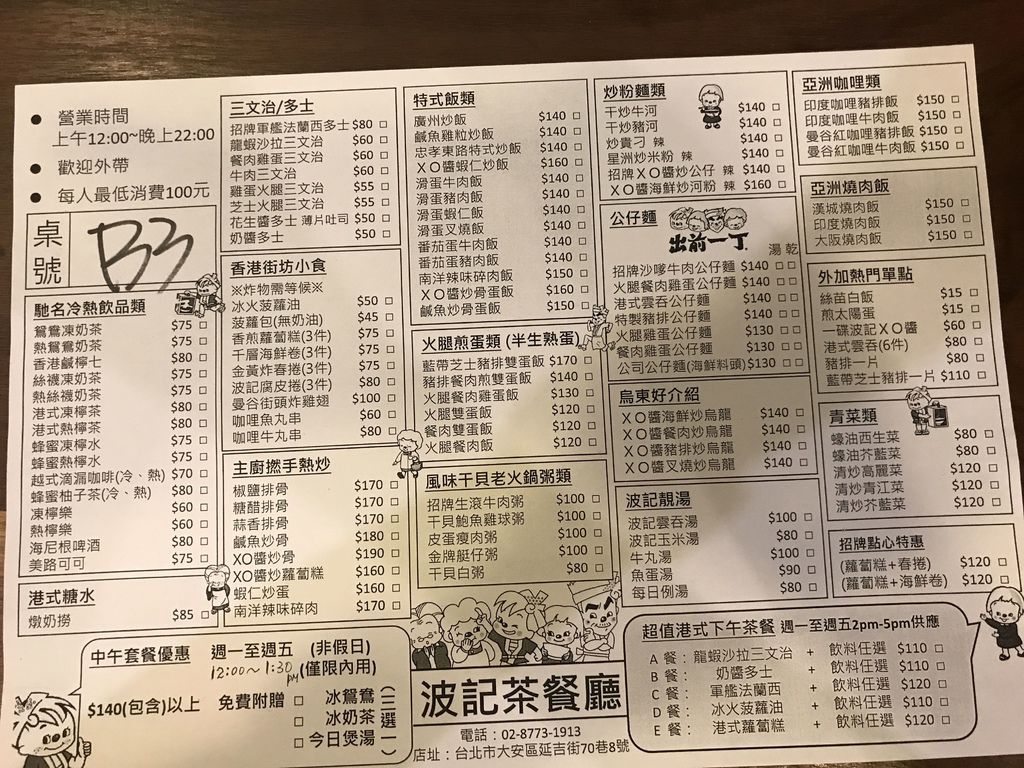 ● 營業時間
上午12:00~晚上22:00
● 歡迎外帶
● 每人最低消費100元
桌號 B3
馳名冷熱飲品類
鴛鴦凍奶茶 $75 □
熱鴛鴦奶茶 $75 □
香港鹹檸七 $80 □
絲襪凍奶茶 $75 □
熱絲襪奶茶 $75 □
港式凍檸茶 $80 □
港式熱檸茶 $80 □
蜂蜜凍檸水 $75 □
蜂蜜熱檸水 $75 □
越式滴漏咖啡(冷、熱) $70 □
蜂蜜柚子茶(冷、熱) $80 □
凍檸樂 $60 □
熱檸樂 $60 □
海尼根啤酒 $80 □
美路可可 $75 □
港式糖水
燉奶撈 $85 □
三文治/多士
招牌軍艦法蘭西多士 $80 □
龍蝦沙拉三文治 $60 □
餐肉雞蛋三文治 $60 □
牛肉三文治 $60 □
雞蛋火腿三文治 $55 □
芝士火腿三文治 $55 □
花生醬多士 薄片吐司 $50 □
奶醬多士 $50 □
香港街坊小食
※炸物需等候※
冰火菠蘿油 $50 □
菠蘿包(無奶油) $45 □
香煎蘿蔔糕(3件) $75 □
千層海鮮卷(3件) $75 □
金黃炸春捲(3件) $75 □
波記腐皮捲(3件) $80 □
曼谷街頭炸雞翅 $100 □
咖哩魚丸串 $60 □
咖哩牛丸串 $80 □
主廚撚手熱炒
椒鹽排骨 $170 □
糖醋排骨 $170 □
蒜香排骨 $170 □
鹹魚炒骨 $180 □
XO醬炒骨 $190 □
XO醬炒蘿蔔糕 $160 □
蝦仁炒蛋 $160 □
南洋辣味碎肉 $170 □
特式飯類
廣州炒飯 $140 □
鹹魚雞粒炒飯 $140 □
忠孝東路特式炒飯 $140 □
XO醬蝦仁炒飯 $160 □
滑蛋牛肉飯 $140 □
滑蛋豬肉飯 $140 □
滑蛋蝦仁飯 $140 □
滑蛋叉燒飯 $140 □
番茄蛋牛肉飯 $140 □
番茄蛋豬肉飯 $140 □
南洋辣味碎肉飯 $150 □
XO醬炒骨蛋飯 $160 □
鹹魚炒骨蛋飯 $150 □
火腿煎蛋類 (半生熟蛋)
藍帶芝士豬排雙蛋飯 $170 □
豬排餐肉煎雙蛋飯 $140 □
火腿餐肉雞蛋飯 $130 □
火腿雙蛋飯 $120 □
餐肉雙蛋飯 $120 □
火腿餐肉飯 $120 □
風味干貝老火鍋粥類
招牌生滾牛肉粥 $100 □
干貝鮑魚雞球粥 $100 □
皮蛋瘦肉粥 $100 □
金牌艇仔粥 $100 □
干貝白粥 $80 □
炒粉麵類
干炒牛河 $140 □
干炒豬河 $140 □
炒貴刁 辣 $140 □
星洲炒米粉 辣 $140 □
招牌XO醬炒公仔 辣 $140 □
XO醬海鮮炒河粉 辣 $160 □
公仔麵 出前一丁 湯 乾
招牌沙嗲牛肉公仔麵 $140 □ □
火腿餐肉雞蛋公仔麵 $140 □ □
港式雲吞公仔麵 $140 □ □
特製豬排公仔麵 $140 □ □
火腿雞蛋公仔麵 $130 □ □
餐肉雞蛋公仔麵 $130 □ □
公司公仔麵(海鮮料頭) $130 □ □
烏東好介紹
XO醬海鮮炒烏龍 $140 □
XO醬餐肉炒烏龍 $140 □
XO醬豬排炒烏龍 $140 □
XO醬叉燒炒烏龍 $140 □
波記靚湯
波記雲吞湯 $100 □
波記玉米湯 $80 □
牛丸湯 $100 □
魚蛋湯 $90 □
每日例湯 $80 □
亞洲咖哩類
印度咖哩豬排飯 $150 □
印度咖哩牛肉飯 $150 □
曼谷紅咖哩豬排飯 $150 □
曼谷紅咖哩牛肉飯 $150 □
亞洲燒肉飯
漢城燒肉飯 $150 □
印度燒肉飯 $150 □
大阪燒肉飯 $150 □
外加熱門單點
絲苗白飯 $15 □
煎太陽蛋 $15 □
一碟波記XO醬 $60 □
港式雲吞(6件) $80 □
豬排一片 $80 □
藍帶芝士豬排一片 $110 □
青菜類
蠔油西生菜 $80 □
蠔油芥藍菜 $80 □
清炒高麗菜 $120 □
清炒青江菜 $120 □
清炒芥藍菜 $120 □
招牌點心特惠
(蘿蔔糕+春捲) $120 □
(蘿蔔糕+海鮮卷) $120 □
中午套餐優惠 週一至週五 (非假日)
12:00~1:30pm (僅限內用)
$140(包含)以上 免費附贈 □ 冰鴛鴦
□ 冰奶茶
□ 今日煲湯
(三選一)
波記茶餐廳
電話：02-8773-1913
店址：台北市大安區延吉街70巷8號
超值港式下午茶餐 週一至週五2pm-5pm供應
A 餐：龍蝦沙拉三文治 + 飲料任選 $110 □
B 餐：奶醬多士 + 飲料任選 $110 □
C 餐：軍艦法蘭西 + 飲料任選 $120 □
D 餐：冰火菠蘿油 + 飲料任選 $110 □
E 餐：港式蘿蔔糕 + 飲料任選 $120 □